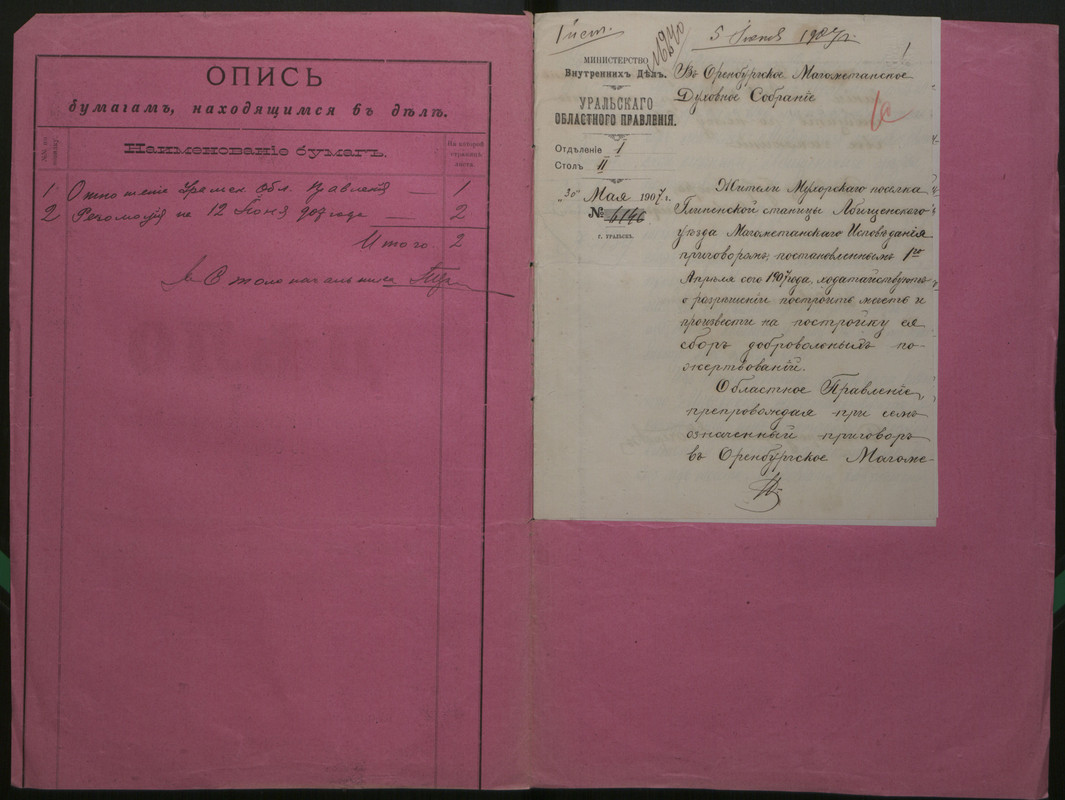 ОПИСЬ
бумагамъ, находящимся въ дѣлѣ.
Наименованіе бумагъ.
На которой страницѣ листа.
1 Отношеніе Уральск. Обл. Правленія — 1
2 Резолюція на 12 Іюня 907 года — 2
Итого 2
Столоначальника
1 лист.
№ 2940
5 Іюня 1907 г.
1
МИНИСТЕРСТВО
Внутреннихъ Дѣлъ.
УРАЛЬСКАГО
ОБЛАСТНОГО ПРАВЛЕНІЯ.
Отдѣленіе I
Столъ II
„30" Мая 1907 г.
№ 6146
г. УРАЛЬСКЪ.
Въ Оренбургское Магометанское
Духовное Собраніе
Жители Мухорскаго поселка
станицы Лбищенскаго
уѣзда Магометанскаго Исповѣданія
приговоромъ, постановленнымъ 1го
Апрѣля сего 1907 года, ходатайствуютъ
о разрѣшеніи построить мечеть и
произвести на постройку ея
сборъ добровольныхъ по-
жертвованій.
Областное Правленіе,
препровождая при семъ
означенный приговоръ
въ Оренбургское Магоме-